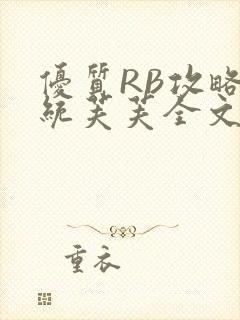 優質RB攻略
統芙芙全文
重衣